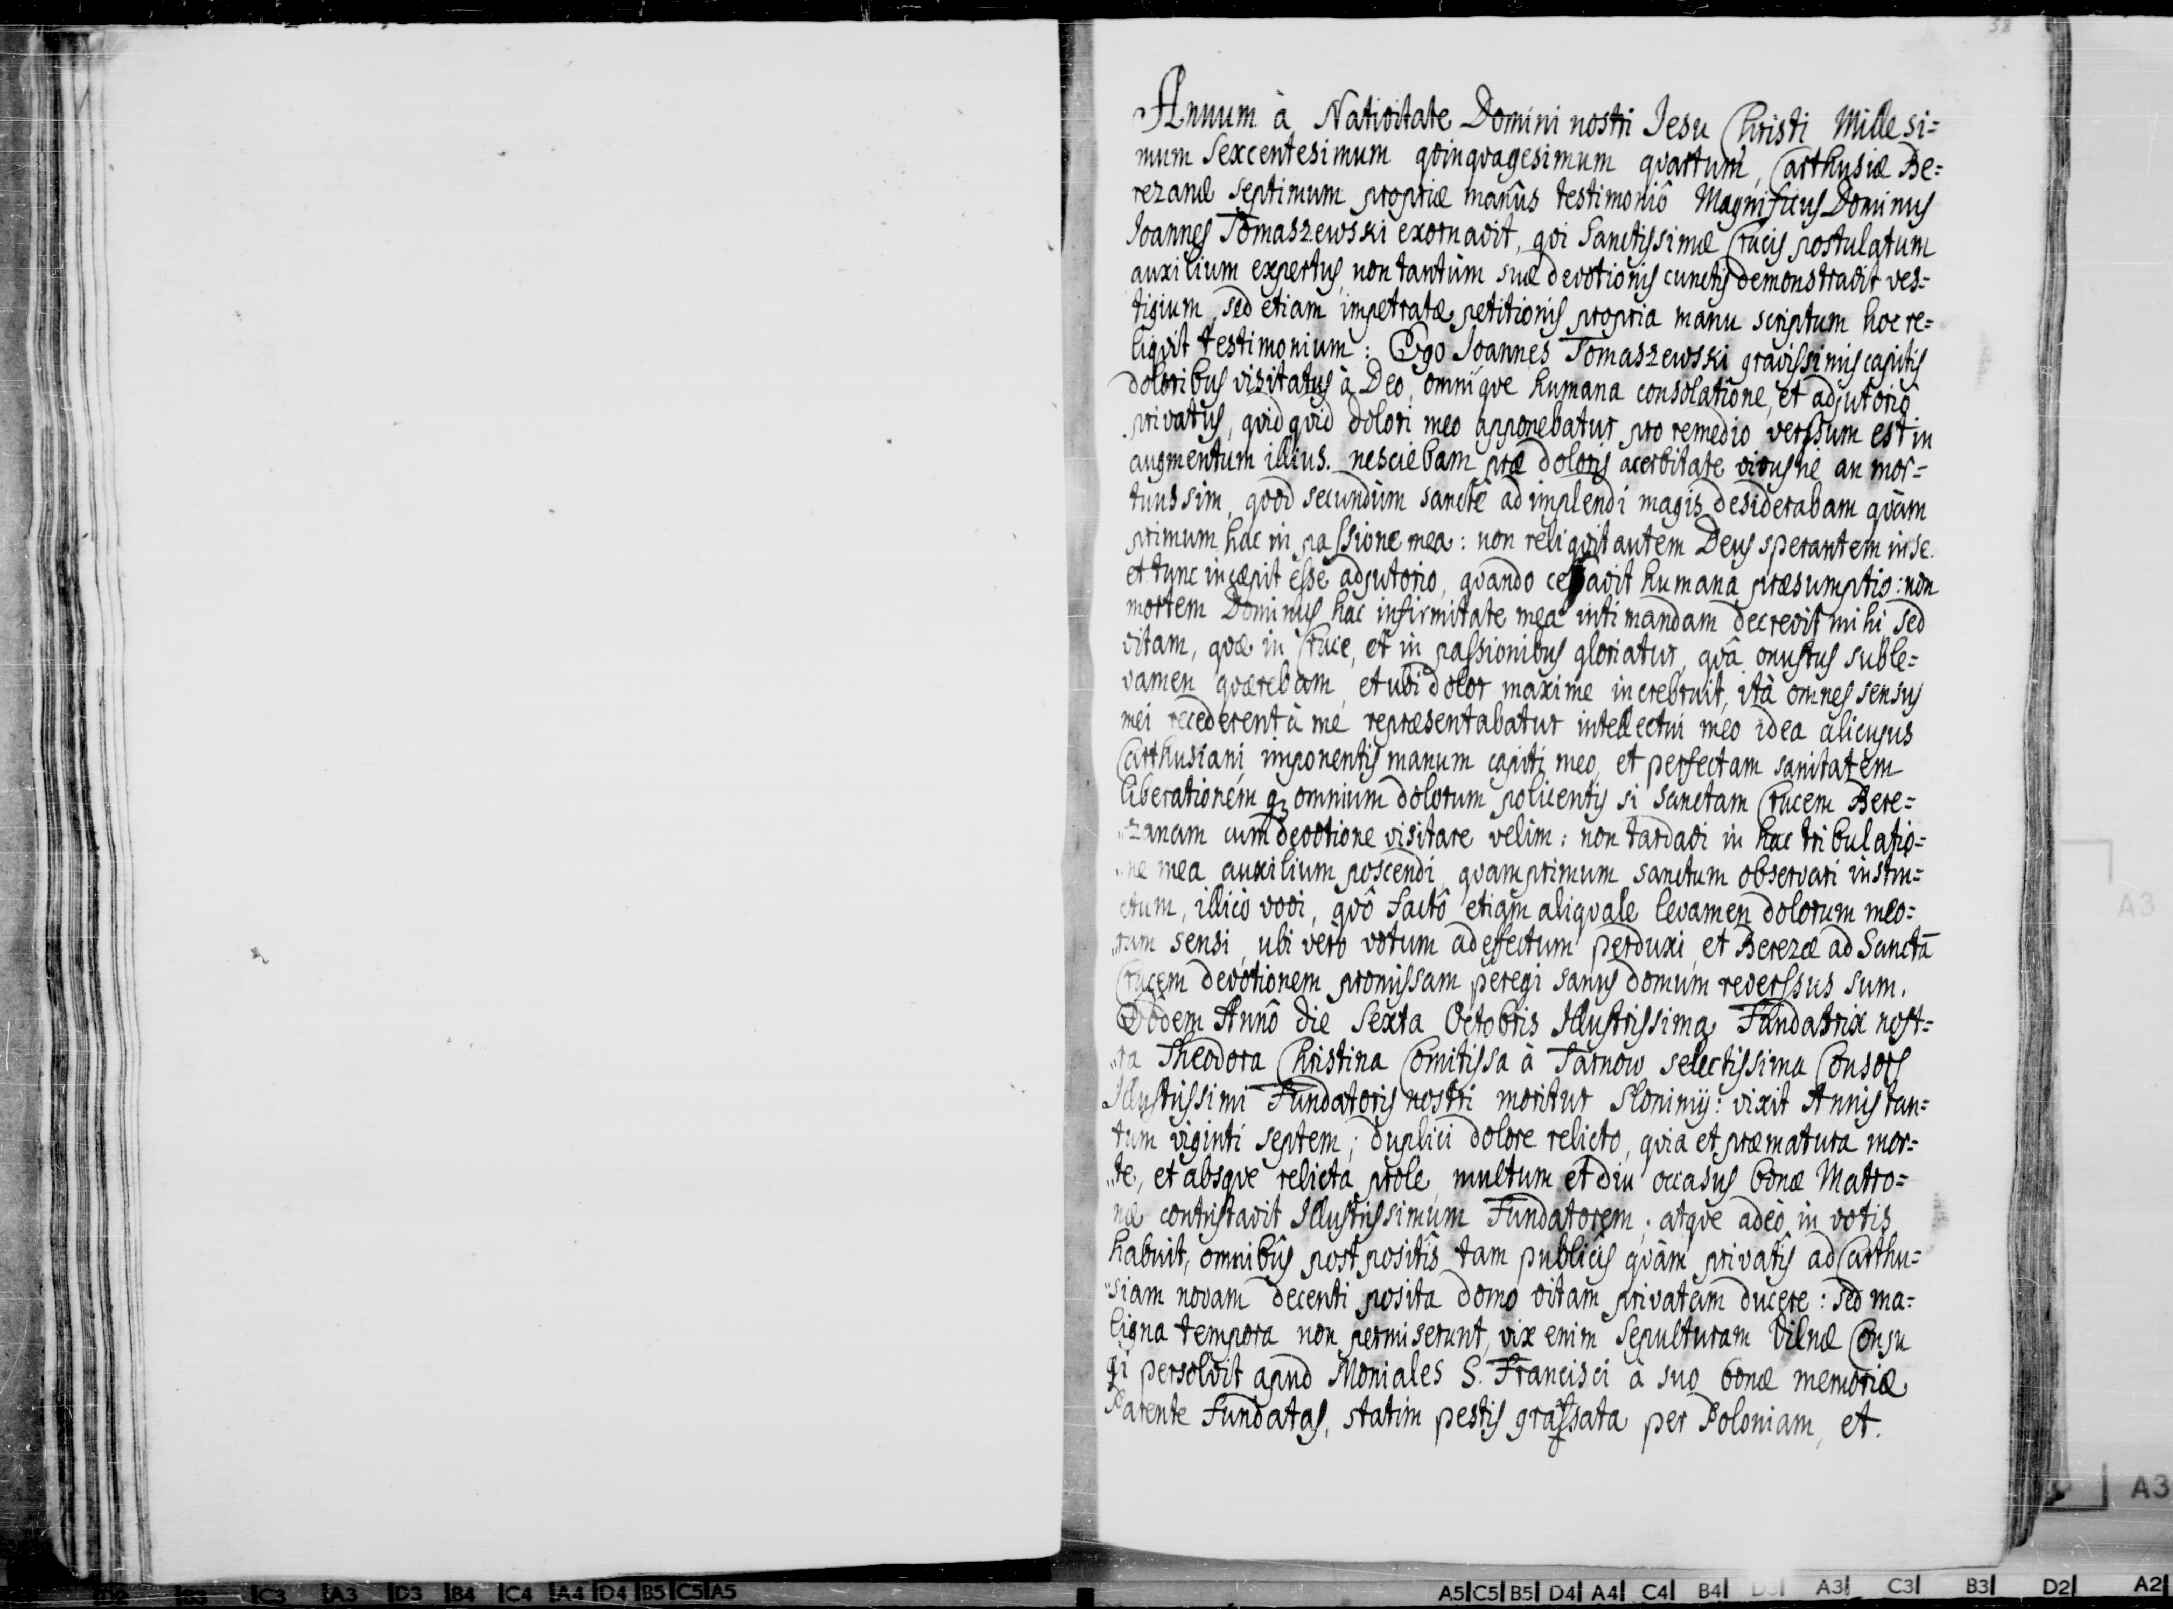 38
Annum à Nativitate Domini nostri Jesu Christi Millesi=
mum Sexcentesimum qvinqvagesimum qvartum, Carthusiæ Be=
rezanæ septimum propriæ manûs testimoniô Magnificus Dominus
Joannes Tomaszewski exornavit, qvi Sanctissimæ Crucis postulatum
auxilium expertus, non tantùm suæ devotionis cunctis demonstravit ves=
tigium, sed etiam impetratæ petitionis propria manu scriptum hoc re=
liqvit testimonium: Ego Joannes Tomaszewski gravissimis capitis
doloribus visitatus à Deo, omniqve humana consolatione, et adjutoriô
privatus, qvidqvid dolori meo apponebatur pro remedio verssum est in
augmentum illius. nesciebam præ doloris acerbitate vivusne an mor=
tuus sim, qvod secundùm sanctè adimplendi magis desiderabam qvàm
primum hac in passione mea: non reliqvit autem Deus sperantem in se.
et tunc incæpit esse adjutorio, qvando cessavit humana præsumptio: non
mortem Dominus hac infirmitate mea intimandam decrevit mihi sed
vitam, qvæ in Cruce, et in passionibus gloriatur, qvâ onustus suble=
vamen qværebam, et ubi dolor maxime increbruit, ità omnes sensus
mei recederent à me repræsentabatur intellectui meo idea alicujus
Carthusiani imponentis manum capiti meo, et perfectam sanitatem
liberationem qz omnium dolorum policentis si Sanctam Crucem Bere=
zanam cum devotione visitare velim: non tardavi in hac tribulatio=
ne mea auxilium poscendi, qvamprimum sanctum observari instru=
ctum, illicò vovi, qvô factô etiam aliqvale levamen dolorum meo=
rum sensi, ubi verò votum ad effectum perduxi, et Berezæ ad Sanctā
Crucem devotionem promissam peregi sanus domum reverssus sum.
Eodem Annô die Sexta Octobris Illustrissima Fundatrix nost=
ra Theodora Christina Comitissa à Tarnow selectissima Consors
Illustrissimi Fundatoris nostri moritur Slonimij: vixit Annis tan=
tum viginti septem; duplici dolore relicto, qvia et præmatura mor=
te, et absqve relicta prole, multum et diu occasus bonæ Matro=
næ contristavit Illustrissimum Fundatorem; atqve adeò in votis
habuit, omnibûs postpositîs tam publicis qvàm privatîs ad Carthu=
siam novam decenti posita domo vitam privatam ducere: sed ma=
ligna tempora non permiserunt, vix enim Sepulturam Vilnæ Conju
gi persolvit apud Moniales S. Francisci à suo bonæ memoriæ
Parente Fundatas, statim pestis grassata per Poloniam, et.
A3
A3
B3 C3 A3 D3 B4 C4 A4 D4 B5 C5 A5
A5 C5 B5 D4 A4 C4 B4 D3 A3 C3 B3 D2 A2